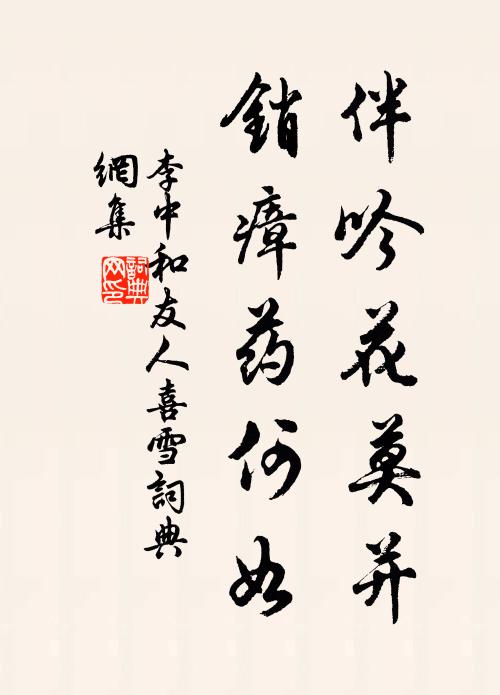 伴吟花莫并
銷瘴药何如
李中和友人喜雪詞典
網集
詞典網印